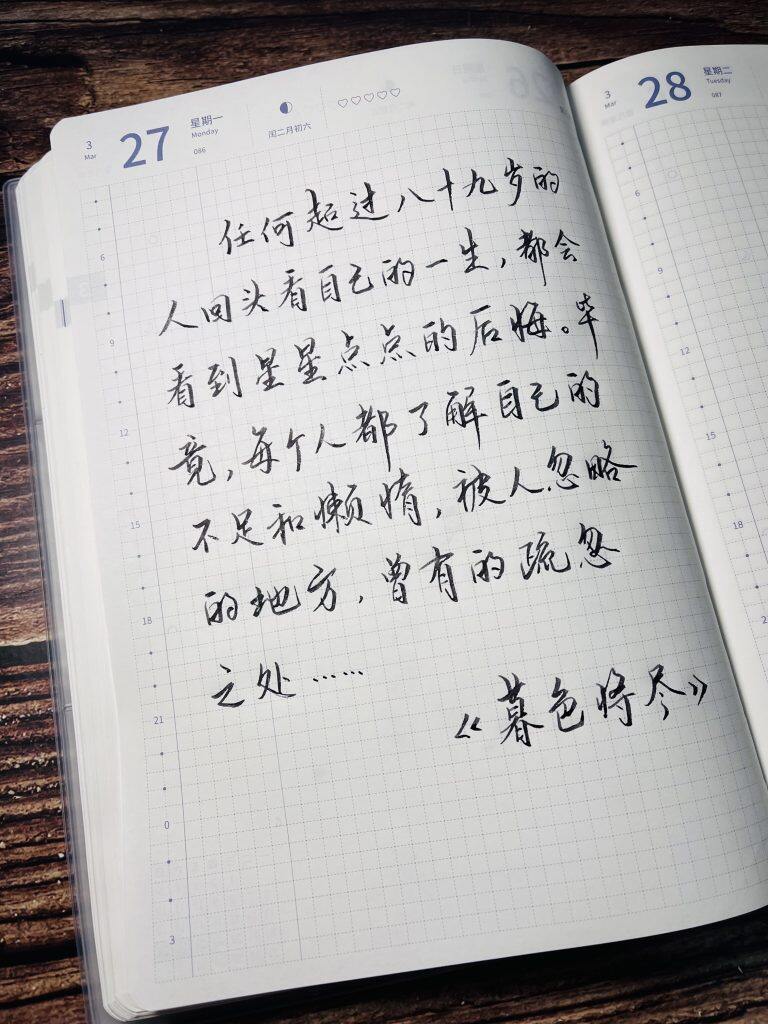 3
Mar
27
星期一
Monday
086
闰二月初六
♡♡♡♡♡
任何超过八十九岁的
人回头看自己的一生，都会
看到星星点点的后悔。毕
竟，每个人都了解自己的
不足和懒惰，被人忽略
的地方，曾有的疏忽
之处……
《暮色将尽》
6
9
12
15
18
21
0
3
3
Mar
28
星期二
Tuesday
087
6
9
12
15
18